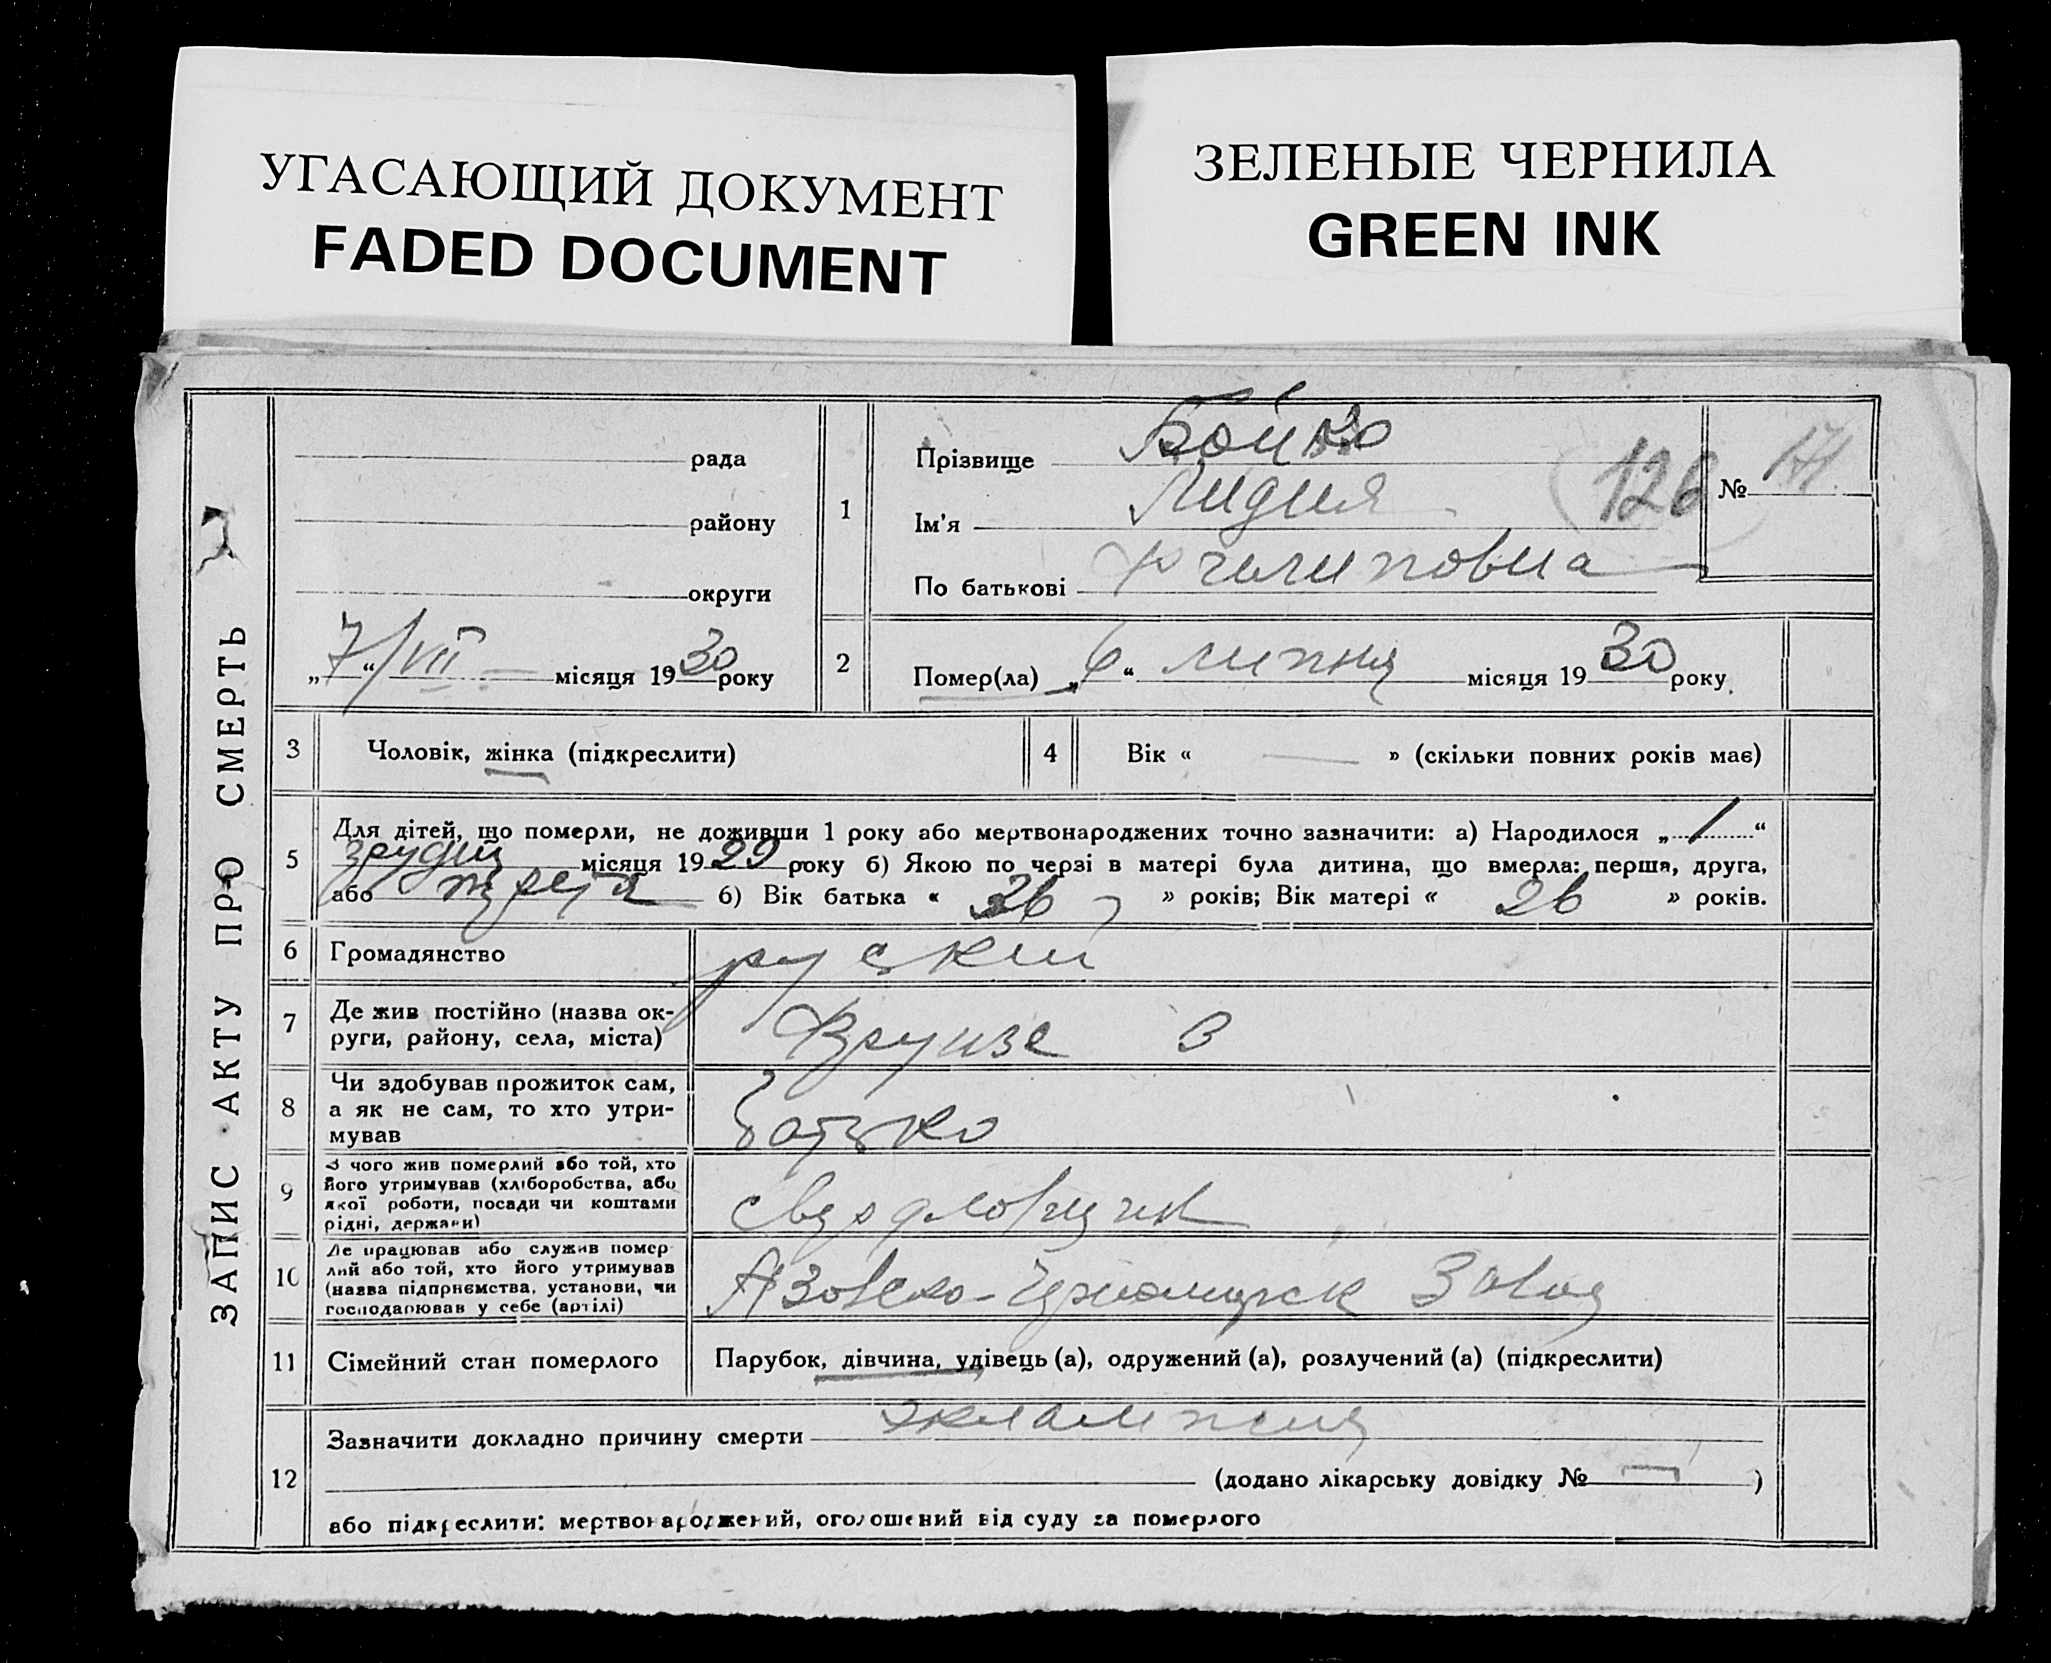 УГАСАЮЩИЙ ДОКУМЕНТ
FADED DOCUMENT
ЗЕЛЕНЫЕ ЧЕРНИЛА
GREEN INK
ЗАПИС АКТУ ПРО СМЕРТЬ
рада
району
округи
„7“/VII місяця 1930 року
1
Прізвище Бойко
Ім'я Лидия
По батькові Филиповна
126
№ 171
2
Помер(ла) „6“ липня місяця 1930 року
3
Чоловік, жінка (підкреслити)
4
Вік « — » (скільки повних років має)
5
Для дітей, що померли, не доживши 1 року або мертвонароджених точно зазначити: а) Народилося „1“
грудня місяця 1929 року б) Якою по черзі в матері була дитина, що вмерла: перша, друга,
або третя б) Вік батька « 26 » років; Вік матері « 26 » років.
6
Громадянство
руский
7
Де жив постійно (назва ок-
руги, району, села, міста)
Фрунзе 3
8
Чи здобував прожиток сам,
а як не сам, то хто утри-
мував
батько
9
З чого жив померлий або той, хто
його утримував (хліборобства, або
якої роботи, посади чи коштами
рідні, держави)
свердловщик
10
Де працював або служив помер
лий або той, хто його утримував
(назва підприємства, установи, чи
господарював у себе (артілі)
Азовско- Завод
11
Сімейний стан померлого
Парубок, дівчина, удівець (а), одружений (а), розлучений (а) (підкреслити)
12
Зазначити докладно причину смерти эклампсия
(додано лікарську довідку № — )
або підкреслити: мертвонароджений, оголошений від суду за померлого